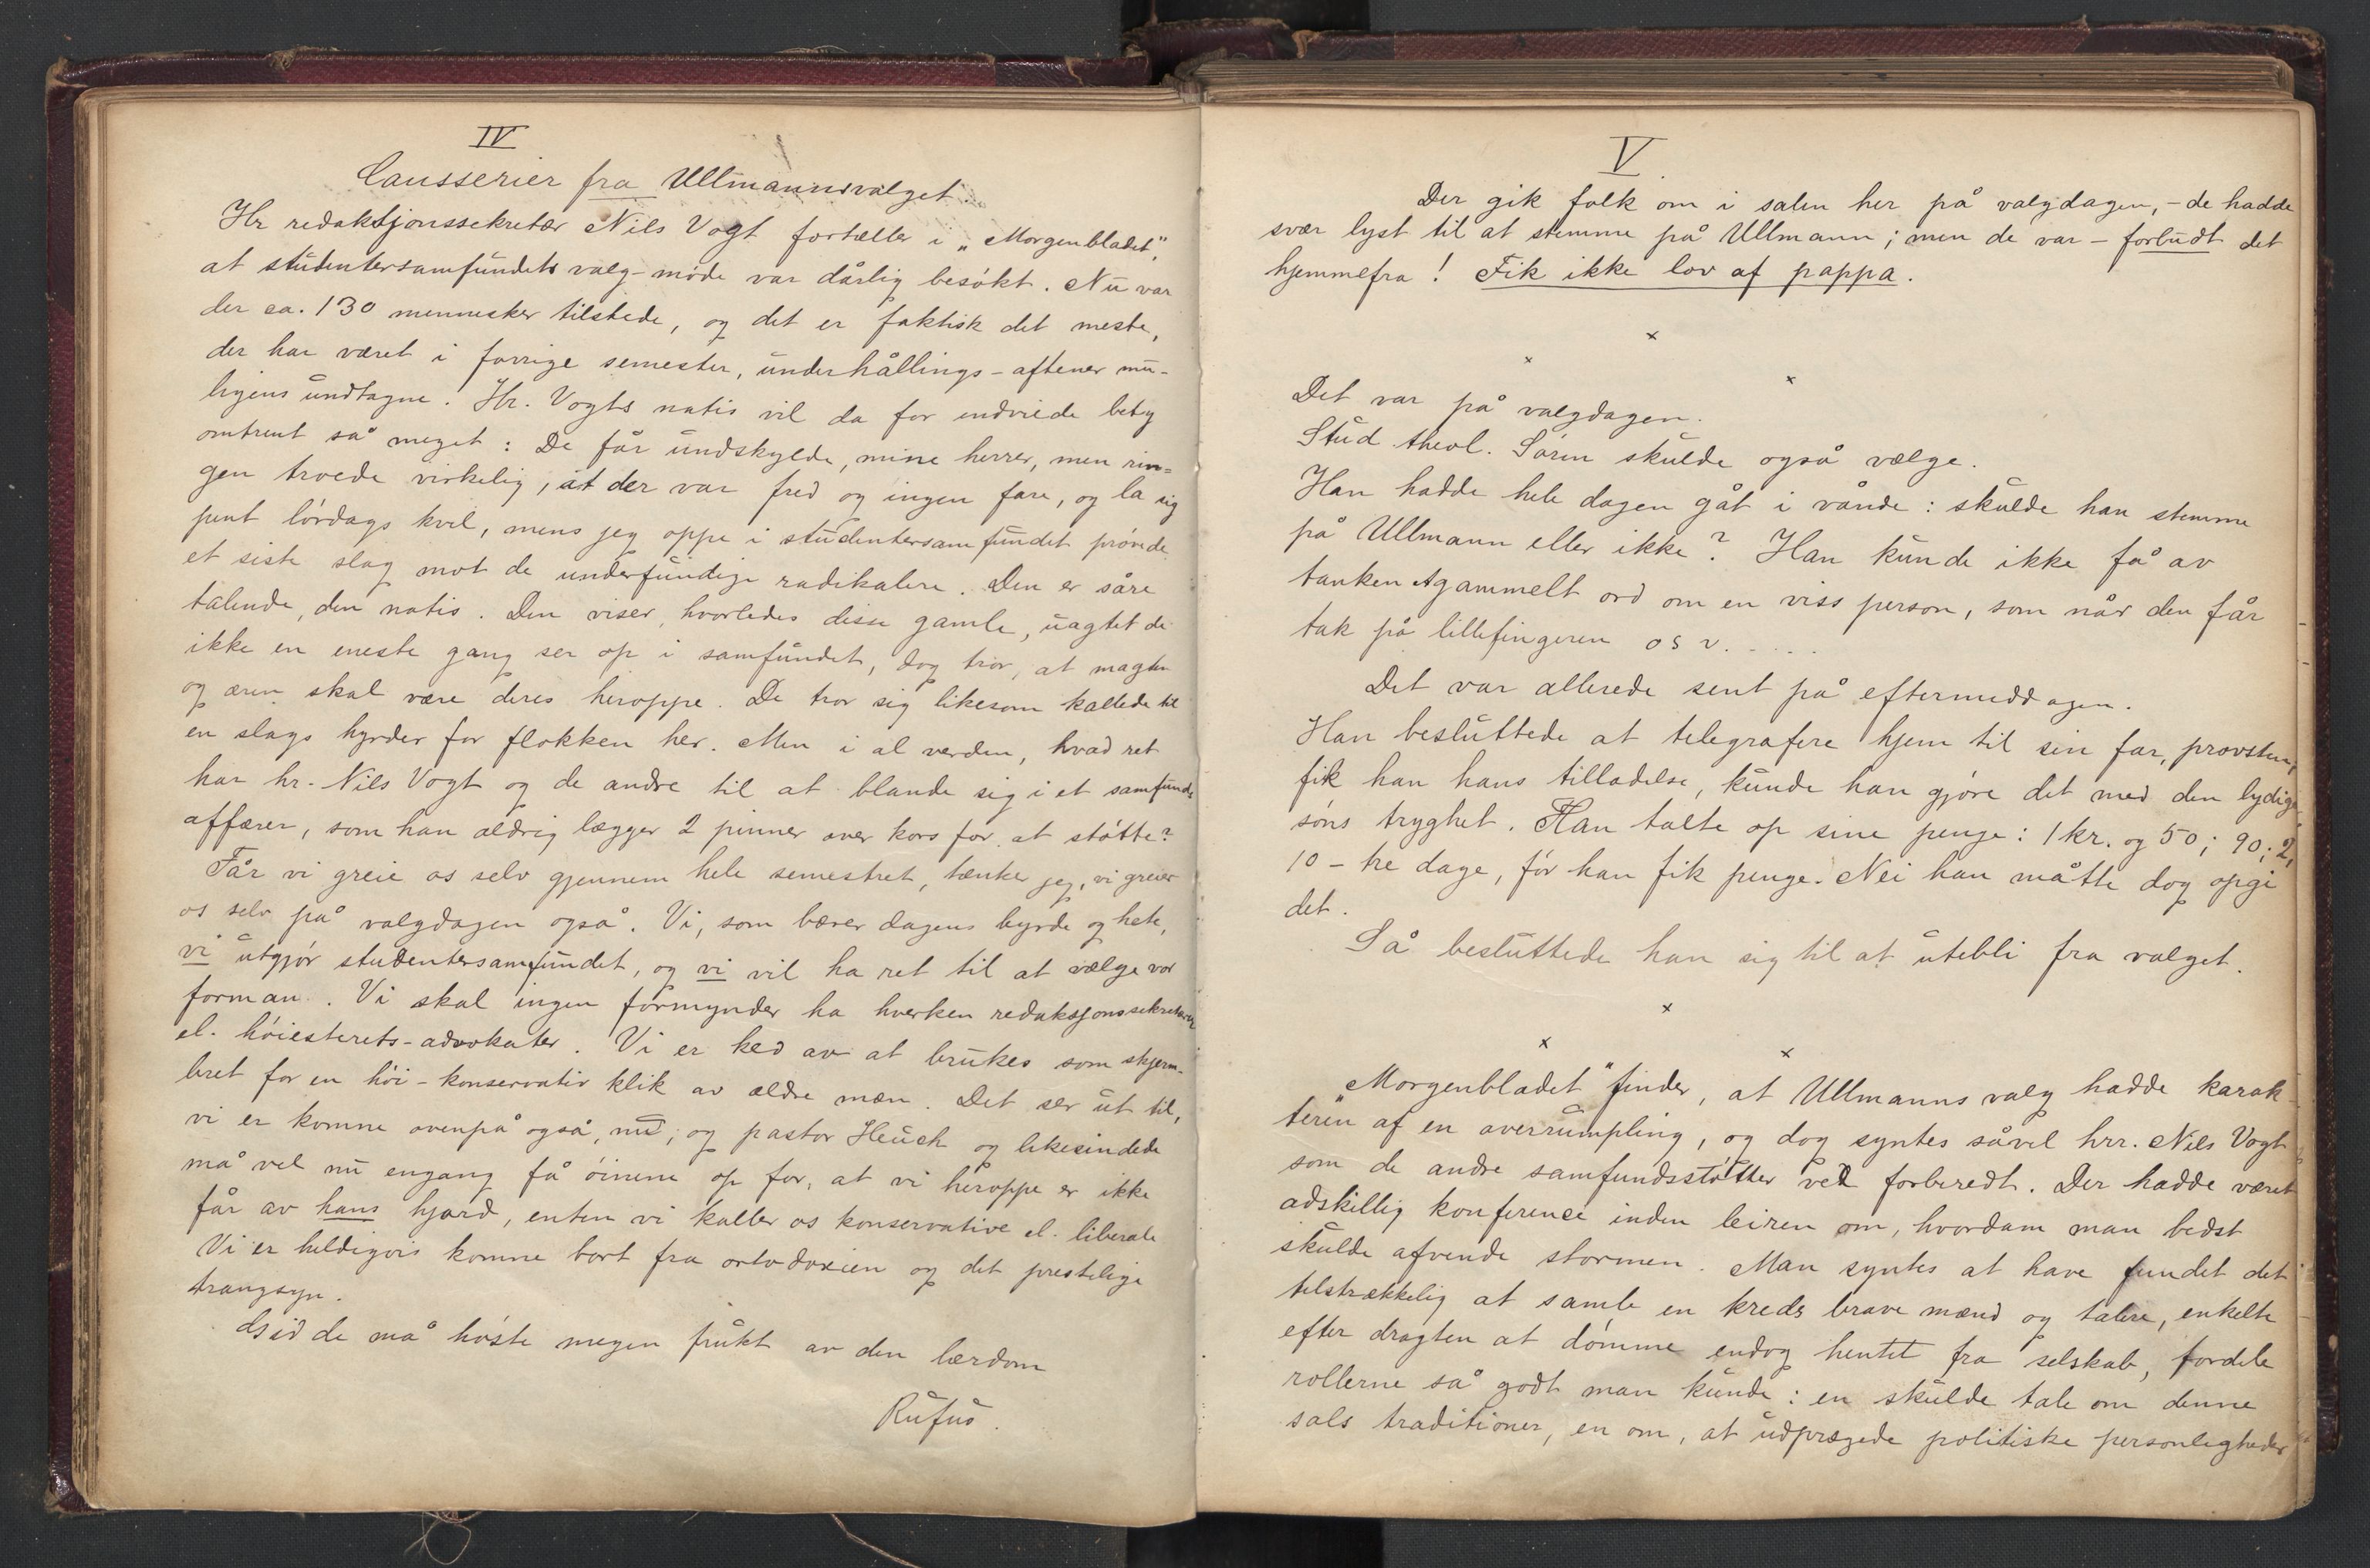 IV
Causserier fra Ullmannsvalget.
Hr redaktjonssekretær Nils Vogt fortæller i "Morgenbladet",
at studentersamfundets valg-møde var dårlig besøkt. Nu var
der ca. 130 mennesker tilstede, og det er faktisk det meste,
der har været i forrige semester, underhållings-aftener mu-
ligens undtagne. Hr. Vogts notis vil da for indviede bety
omtrent så meget: De får undskylde, mine herrer, men rin=
gen troede virkelig, at der var fred og ingen fare, og la sig
pent lørdags kvel, mens jeg oppe i studentersamfundet prøvede
et siste slag mot de underfundige radikalere. Den er såre
talende, den notis. Den viser, hvorledes disse gamle, uagtet de
ikke en eneste gang ser op i samfundet, dog tror, at magten
og æren skal være deres heroppe. De tror sig likesom kallede til
en slags hyrder for flokken her. Men i al verden, hvad ret
har hr. Nils Vogt og de andre til at blande sig i et samfunds
affærer, som han aldrig lægger 2 pinner over kors for at støtte?
Får vi greie os selv gjennem hele semestret, tænker jeg, vi greier
os selv på valgdagen også. Vi, som bærer dagens byrde og hete,
vi utgjør studentersamfundet, og vi vil ha ret til at vælge vor
forman. Vi skal ingen formynder ha hverken redaksjonssekretærer
el. høiesterets-advokater. Vi er ked av at brukes som skjerm-
bret for en høi-konservativ klik av ældre mæn. Det ser ut til,
vi er komne ovenpå også, nu, og pastor Heuch og likesindede
må vel nu engang få øinene op for, at vi heroppe er ikke
får av hans hjord, enten vi kaller os konservative el. liberale
Vi er heldigvis komne bort fra ortodoxien og det prestelige
trangsyn.
Gid de må høste megen frukt av den lærdom
Rufus.
V
Der gik folk om i salen her på valgdagen, - de hadde
svær lyst til at stemme på Ullmann; men de var - forbudt det
hjemmefra! Fik ikke lov af pappa.
x
x x
Det var på valgdagen.
Stud. theol. Søren skulde også vælge.
Han hadde hele dagen gåt i vånde: skulde han stemme
på Ullmann eller ikke? Han kunde ikke få av
tanken et gammelt ord om en viss person, som når den får
tak på lillefingeren osv. . . . .
Det var allerede sent på eftermiddagen.
Han besluttede at telegrafere hjem til sin far, provsten;
fik han hans tilladelse, kunde han gjøre det med den lydige
søns tryghet. Han talte op sine penge: 1 kr. og 50; 90; 2,
10 - tre dage, før han fik penge. Nei han måtte dog opgi
det.
Så besluttede han sig til at utebli fra valget.
x
x x
"Morgenbladet" finder, at Ullmanns valg hadde karak-
teren af en overrumpling, og dog syntes såvel hrr. Nils Vogt
som de andre samfundsstøtter vel forberedt. Der hadde været
adskillig konference inden leiren om, hvordam man bedst
skulde afvende stormen. Man syntes at have fundet det
tilstrækkelig at samle en kreds brave mænd og talere, enkelte
efter dragten at dømme endog hentet fra selskab, fordele
rollerne så godt man kunde: en skulde tale om denne
sals traditioner, en om, at udprægede politiske personligheder